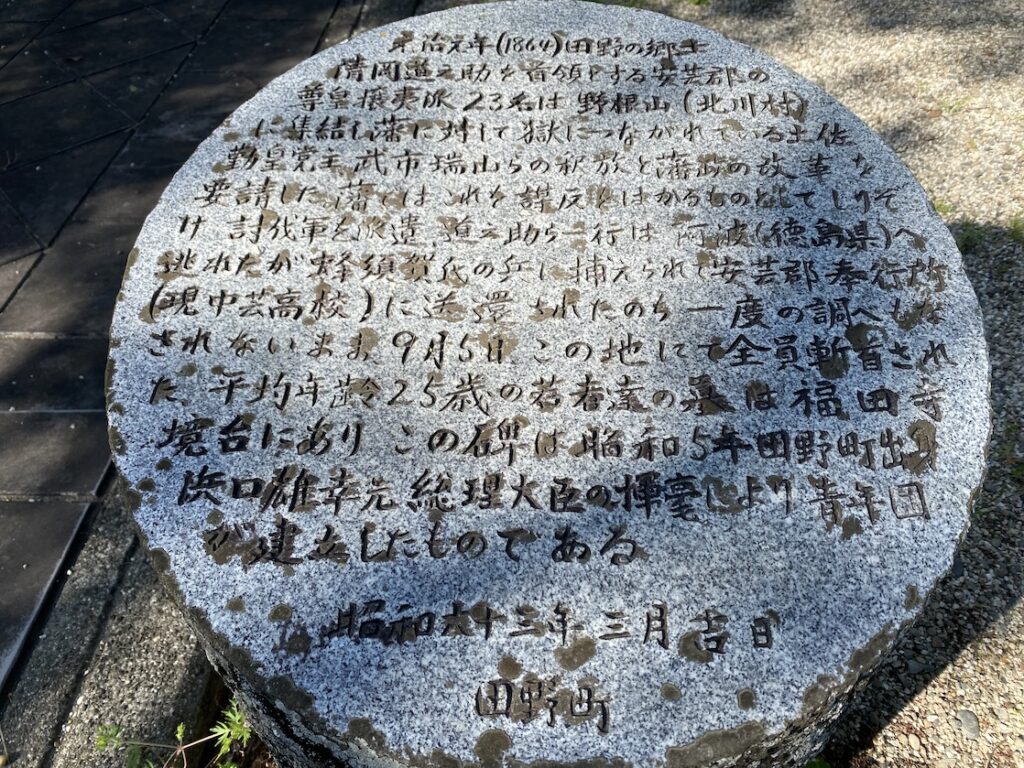 元治元年(1864)田野の郷士
清岡道之助を首領とする安芸郡の
尊皇攘夷派23名は野根山(北川村)
に集結し藩に対して獄につながれている土佐
勤皇党主武市瑞山らの釈放と藩政の改革を
要請した。藩ではこれを謀反をはかるものとしてしりぞ
け討伐軍を派遣、道之助ら一行は阿波(徳島県)へ
逃れたが蜂須賀氏の兵に捕えられて安芸郡奉行所
(現中芸高校)に送還されたのち一度の調べもな
されないまま、9月5日この地にて全員斬首され
た。平均年齢25歳の若者達の墓は福田寺
境台にあり この碑は昭和5年田野町出身
浜口雄幸元総理大臣の揮毫により青年団
が建立したものである
昭和六十三年三月吉日
田野町